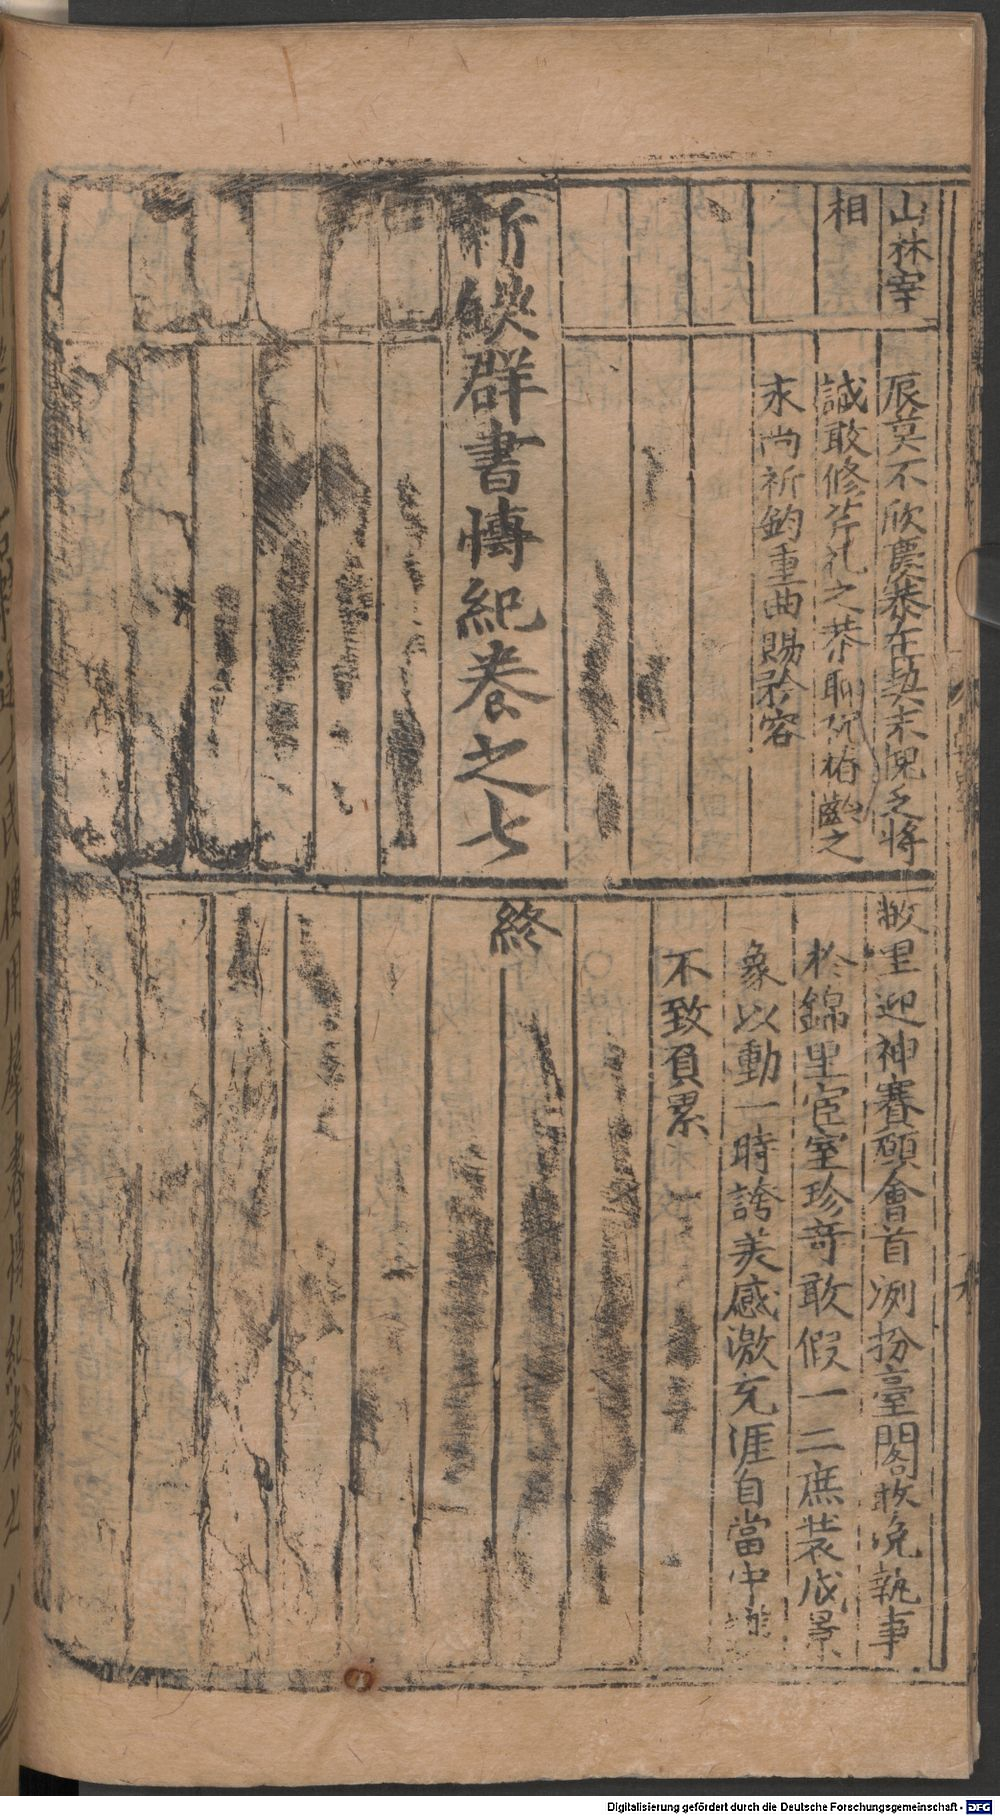 山林宰
相
辰莫不欣慶恭在契末愧乏將
誠敢修芹礼之恭聊祝椿齡之
永尚祈鈞重曲賜矜容
新鋟群書慱紀巻之七
敝里迎神賽願會首冽扮臺閣敢浼執事
於錦里宦室珍奇敢假一二庶装成景
象以動一時誇美感激无涯自當中謹
不致負累
終
Digitalisierung gefördert durch die Deutsche Forschungsgemeinschaft - DFG